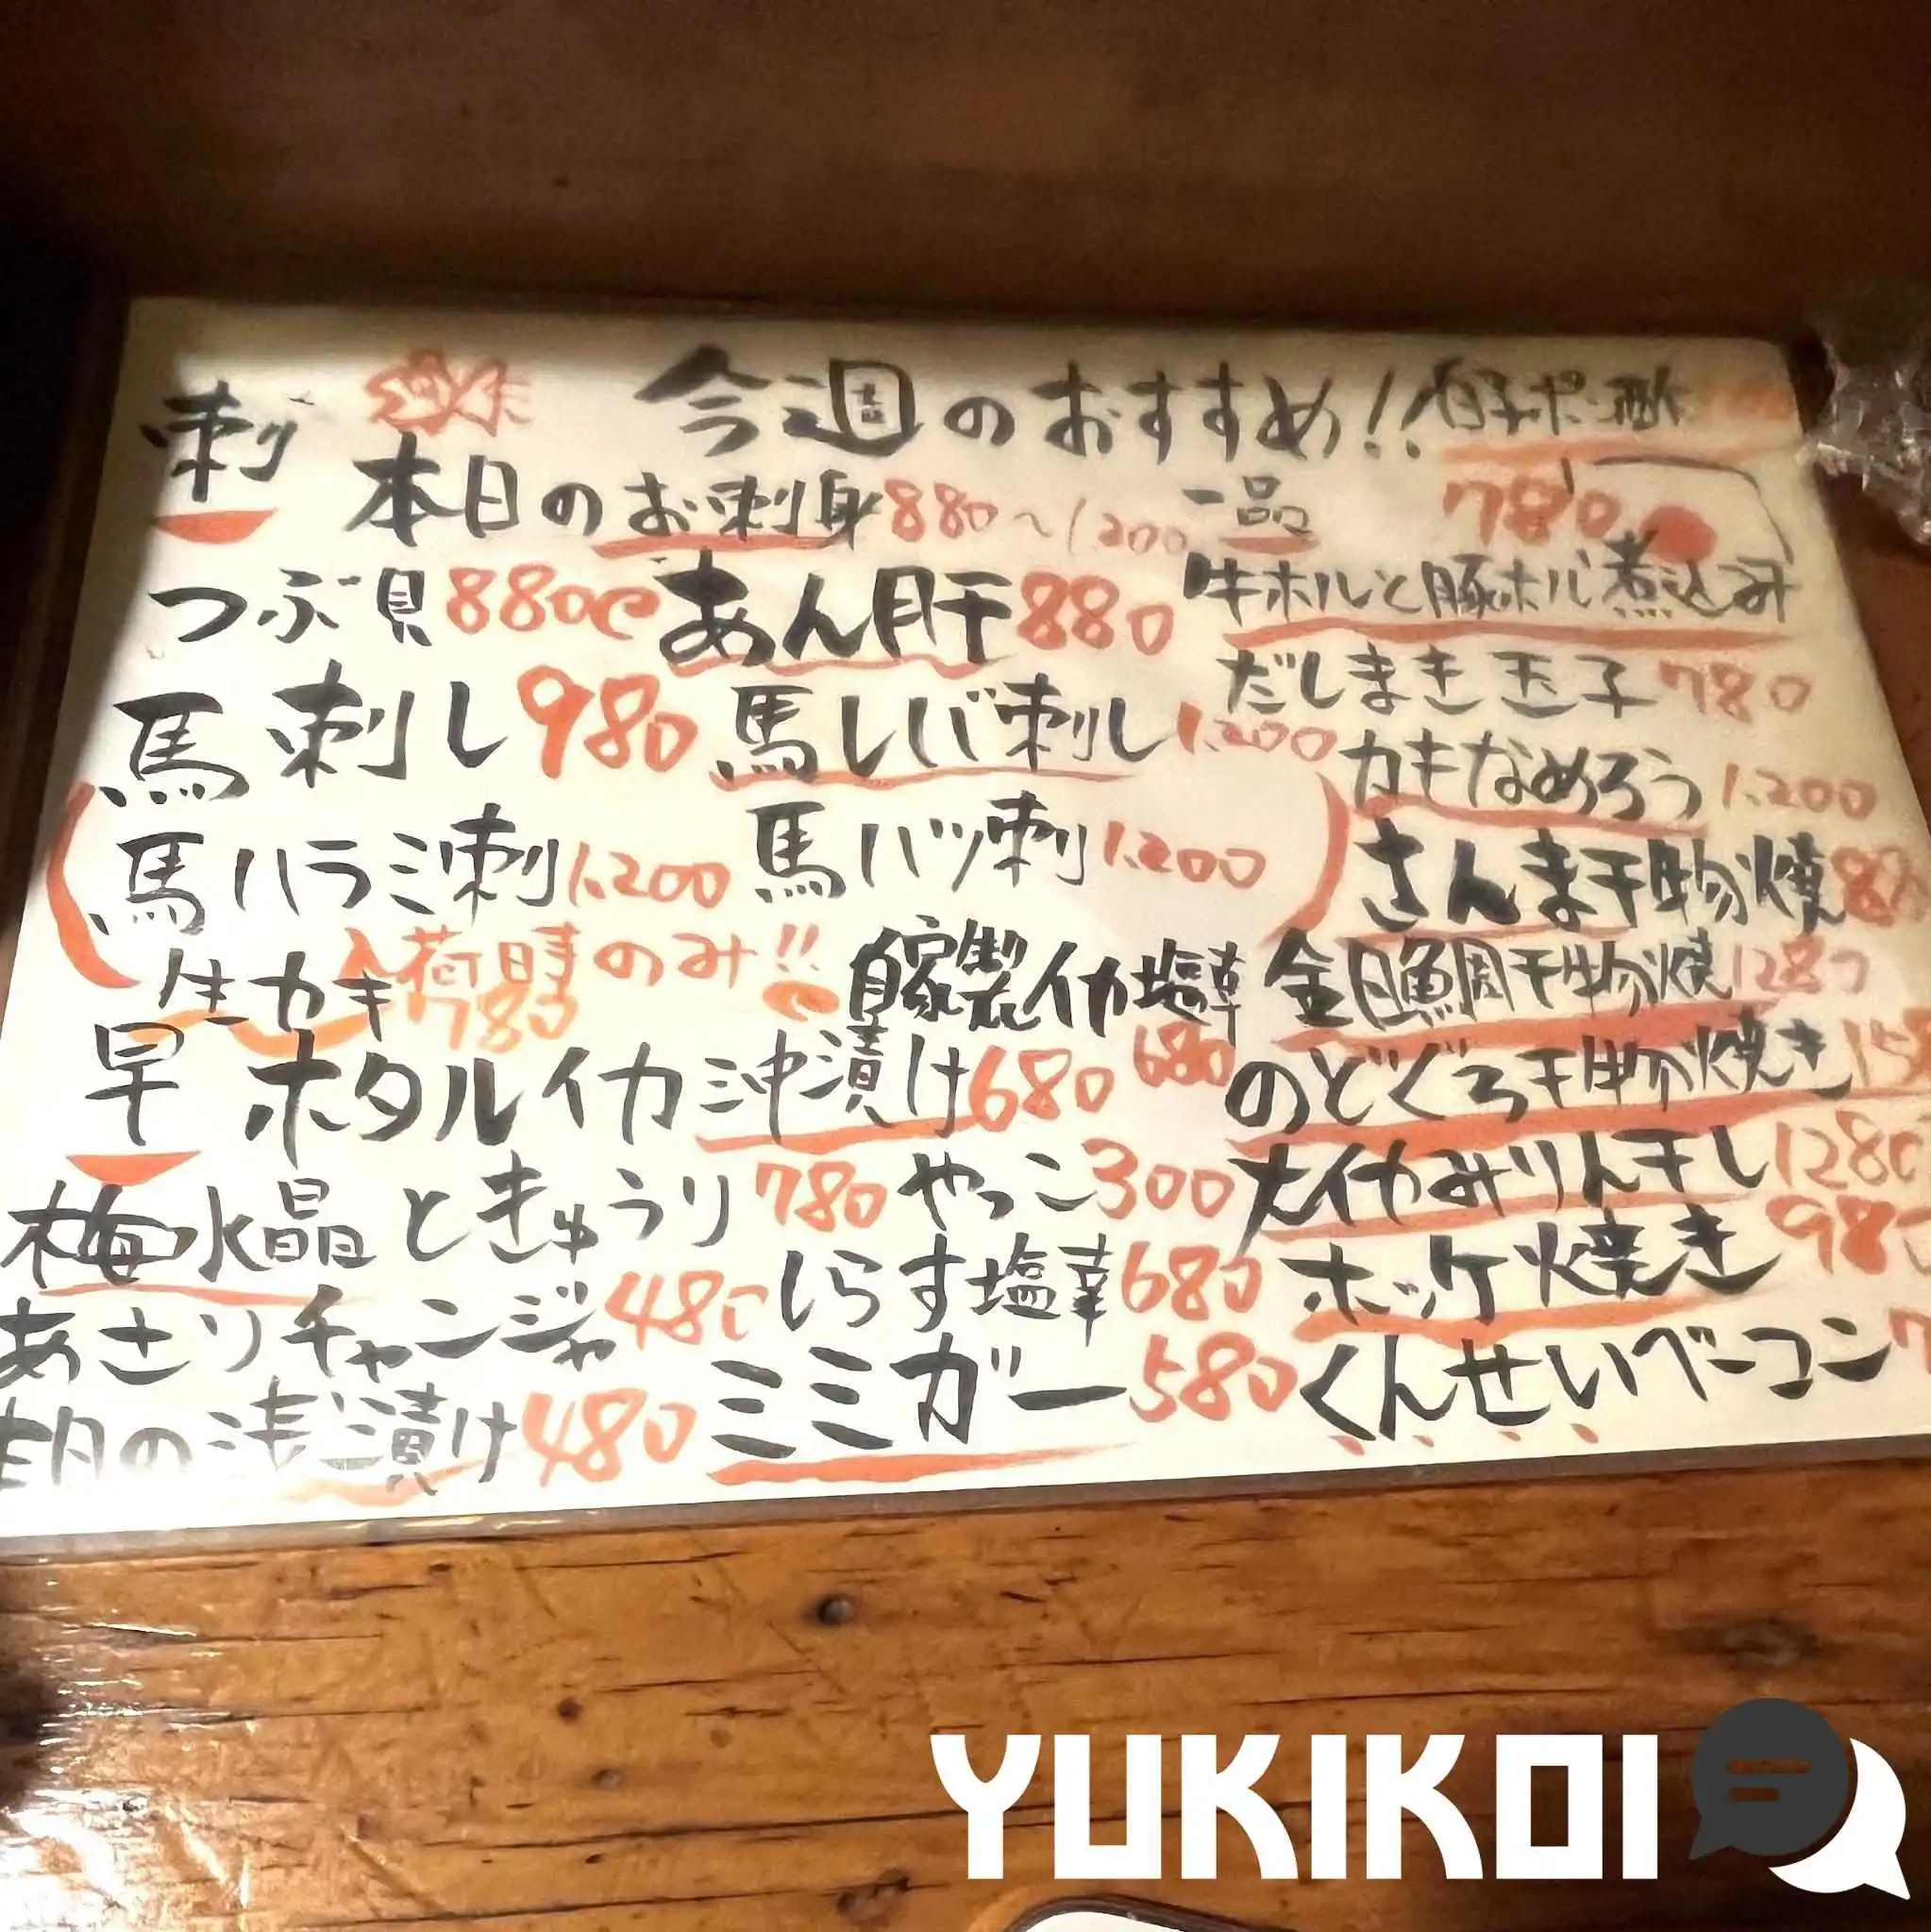 今週のおすすめ!! 白子ポン酢
刺 本日のお刺身 880〜1.200 一品 780
つぶ貝 880 あん肝 880 牛ホルと豚ホル煮込み
だしまき玉子 780
馬刺し 980 馬レバ刺し 1.200 カキなめろう 1.200
馬ハラミ刺 1.200 馬ハツ刺 1.200 さんま干物焼
生カキ 入荷時のみ!! 780 自家製イカ塩辛 680 金目鯛干物焼 1280
早 ホタルイカ沖漬け 680 のどぐろ干物焼き
梅水晶ときゅうり 780 やっこ 300 大イカみりん干し 1280
あさりチャンジャ 480 しらす塩辛 680 ホッケ焼き 980
の浅漬け 480 ミミガー 580 くんせいベーコン
YUKIKOI